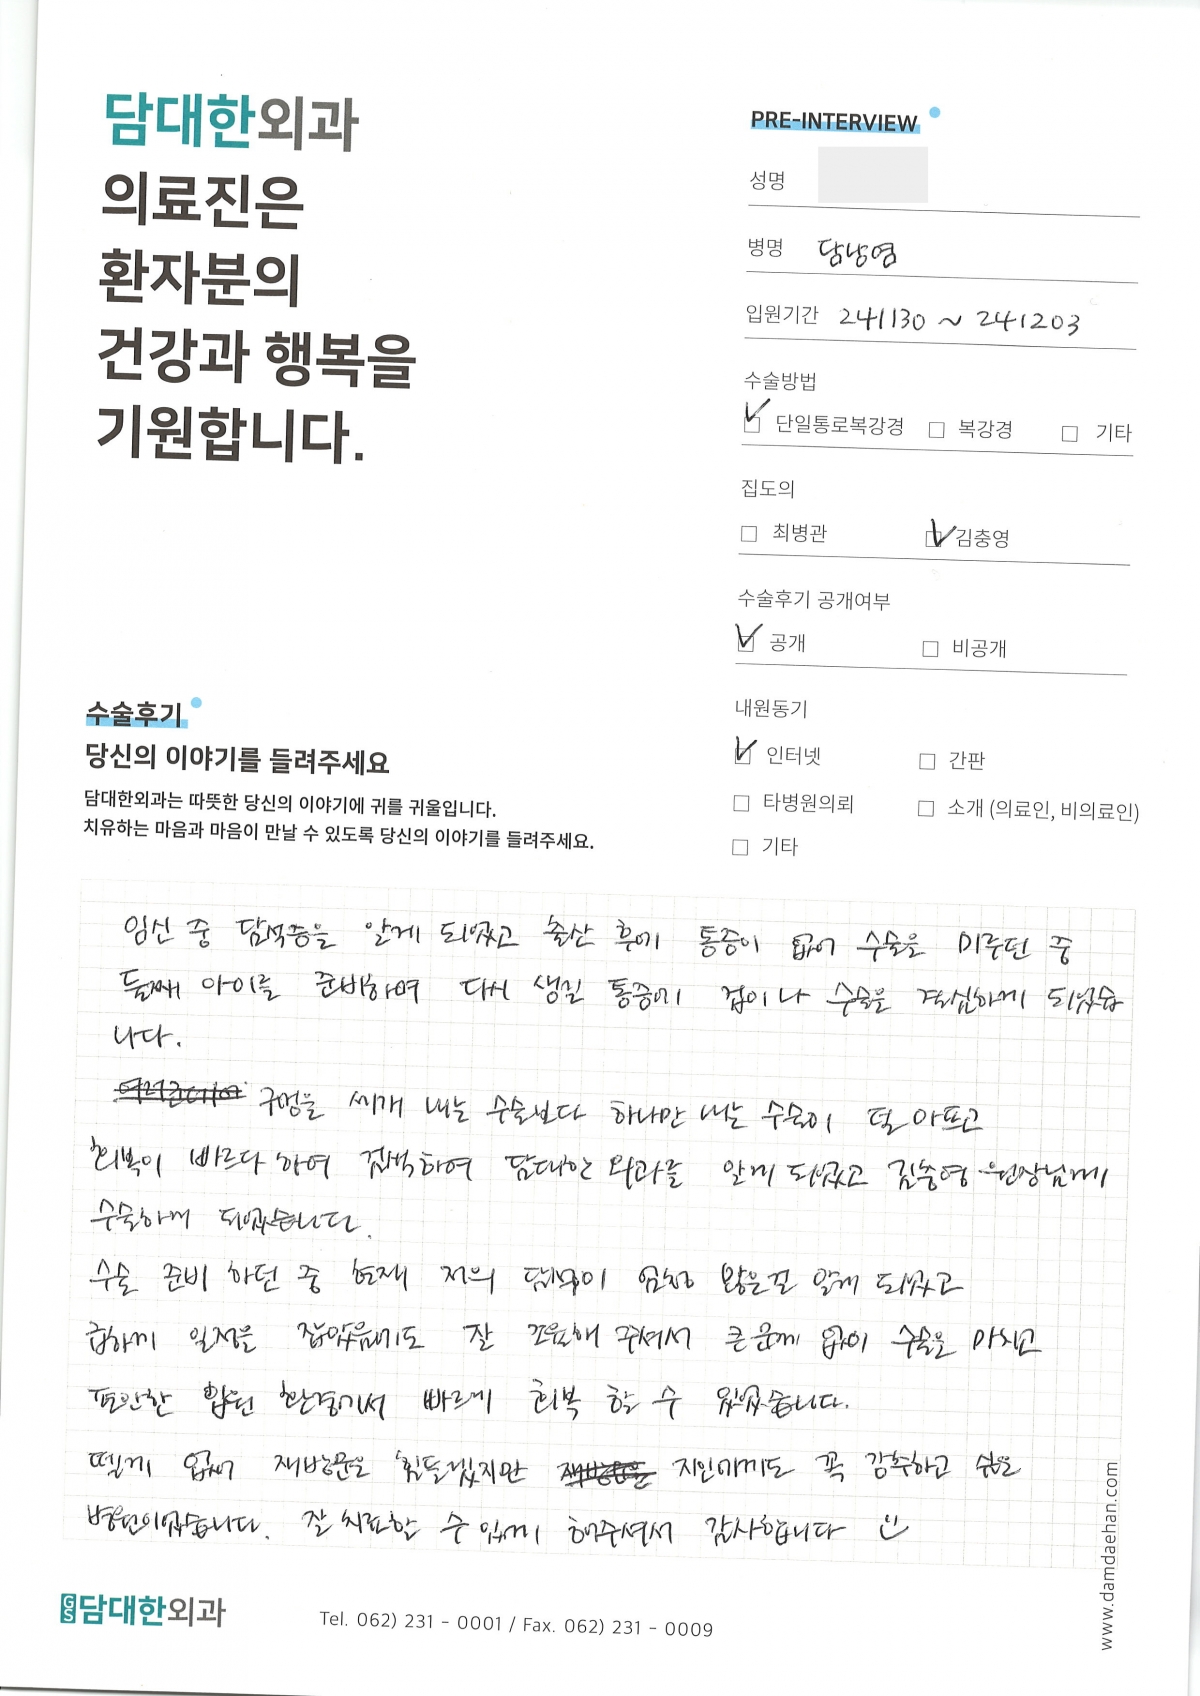 담대한외과
의료진은
환자분의
건강과 행복을
기원합니다.
PRE-INTERVIEW
성명
병명 담낭염
입원기간 241130 ~ 241203
수술방법
단일통로복강경 복강경 기타
집도의
최병관 김충영
수술후기 공개여부
공개 비공개
내원동기
인터넷 간판
타병원의뢰 소개 (의료인, 비의료인)
기타
수술후기
당신의 이야기를 들려주세요
담대한외과는 따뜻한 당신의 이야기에 귀를 귀울입니다.
치유하는 마음과 마음이 만날 수 있도록 당신의 이야기를 들려주세요.
임신 중 담석증을 알게 되었고 출산 후에 통증이 없어 수술을 미루던 중
둘째 아이를 준비하며 다시 생길 통증에 겁이나 수술을 결심하게 되었습
니다.
구멍을 세개 내는 수술보다 하나만 내는 수술이 덜 아프고
회복이 빠르다 하여 검색하여 담대한 외과를 알게 되었고 김충영 원장님께
수술하게 되었습니다.
수술 준비 하던 중 현재 저의 담낭이 염증 않은걸 알게 되었고
급하게 일정을 잡았음에도 잘 조율해 주셔서 큰 문제 없이 수술을 마치고
편안한 병원 환경에서 빠르게 회복 할 수 있었습니다.
뗄게 없어 재방문은 힘들겠지만 지인에게도 꼭 강추하고 싶은
병원이었습니다. 잘 치료할 수 있게 해주셔서 감사합니다
GS 담대한외과
Tel. 062) 231 - 0001 / Fax. 062) 231 - 0009
www.damdaehan.com